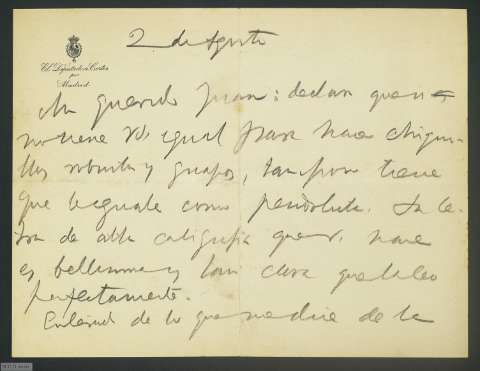 2 de Agosto
El Diputado a Cortes
por
Madrid
Mi querido Juan: declaro que si
no tiene Vd. igual para hacer chiqui-
llos robustos y guapos, tampoco tiene
que le iguale como pendolista. La le-
tra de alta caligrafía que V. hace
es bellísima y tan clara que la leo
perfectamente.
Enterado de lo que me dice de la